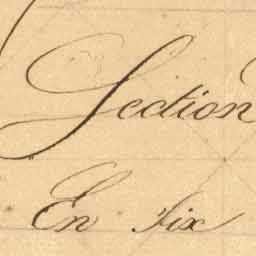 Section
En Six